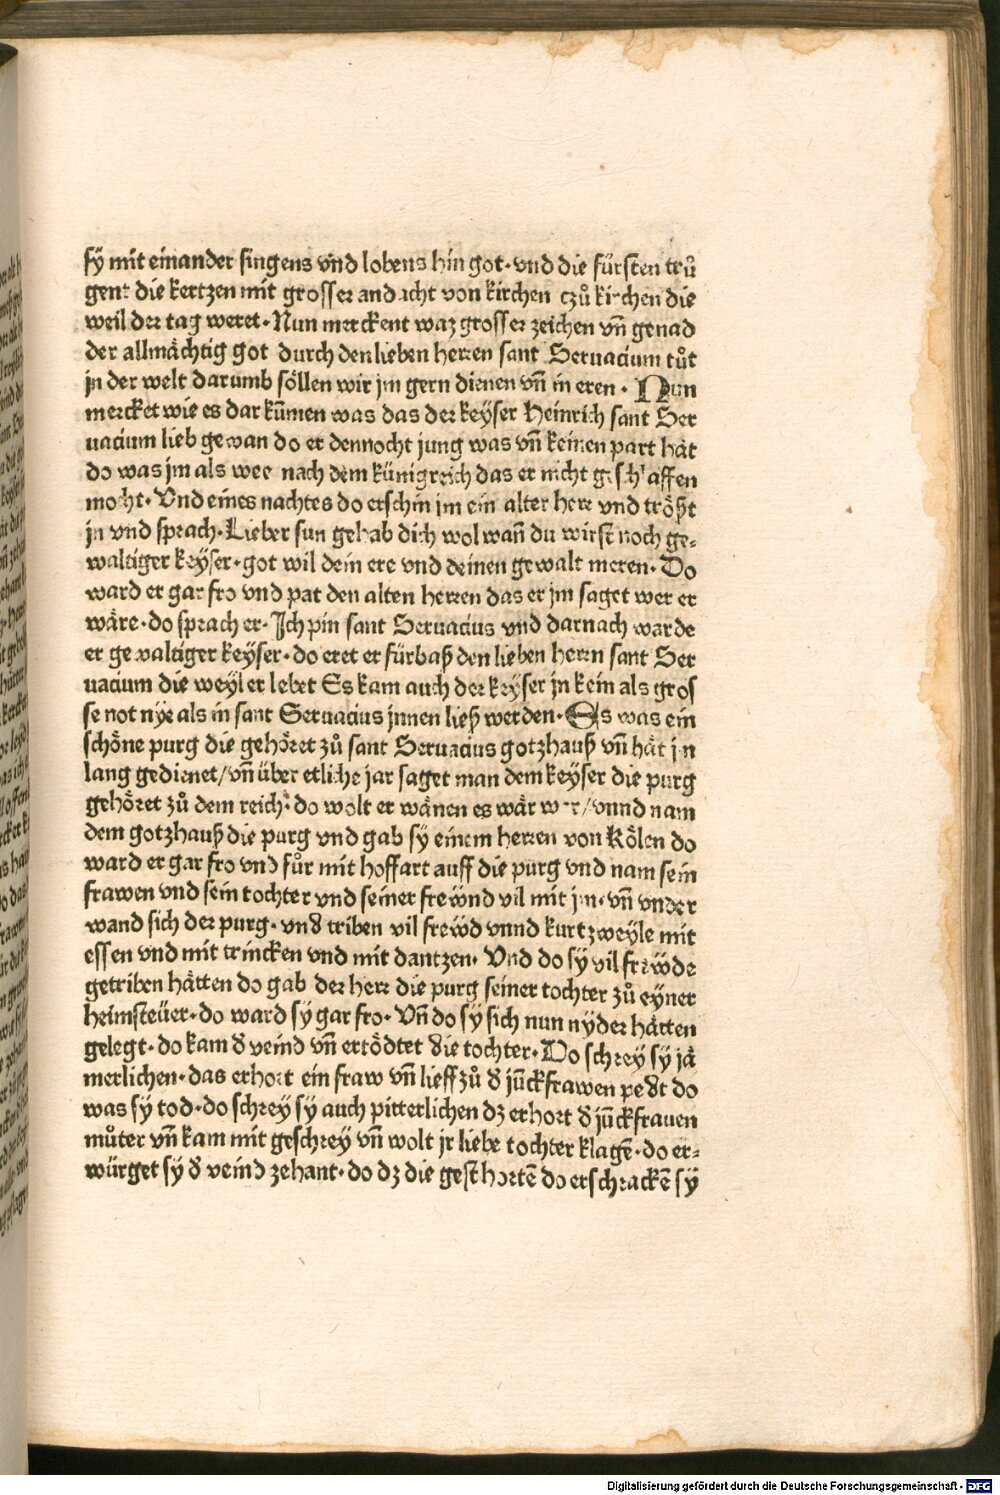 sÿ mit einander singens vnd lobens hin got· vnd die fürsten trů
gent die kertzen mit grosser andacht von kirchen czů kirchen die
weil der tag weret· Nun merckent waz grosser zeichen vn̄ genad
der allmächtig got durch den lieben herren sant Seruacium tůt
in der welt darumb söllen wir jm gern dienen vn̄ in eren· Nun
mercket wie es dar kūmen was das der keÿser Heinrich sant Ser
uacium lieb gewan do er dennocht jung was vn̄ keinen part hät
do was jm als wee nach dem künigreich das er nicht geschlaffen
mocht· Vnd eines nachtes do erschin jm ein alter herr vnd tröszt
jn vnd sprach· Lieber sun gehab dich wol wan̄ du wirst noch ge⸗
waltiger keÿser· got wil dein ere vnd deinen gewalt meren· Do
ward er gar fro vnd pat den alten herren das er jm saget wer er
wäre· do sprach er· Ich pin sant Seruacius vnd darnach warde
er gewaltiger keÿser· do eret er fürbaß den lieben herrn sant Ser
uacium die weÿl er lebet Es kam auch der keÿser jn kein als gros
se not nÿe als in sant Seruacius jnnen ließ werden· Es was ein
schöne purg die gehöret zů sant Seruacius gotzhauß vn̄ hät jn
lang gedienet/ vn̄ über etliche jar saget man dem keÿser die purg
gehöret zů dem reich· do wolt er wänen es wär war/ vnnd nam
dem gotzhauß die purg vnd gab sÿ einem herren von Kölen do
ward er gar fro vnd fůr mit hoffart auff die purg vnd nam sein
frawen vnd sein tochter vnd seiner frewnd vil mit jm· vn̄ vnder
wand sich der purg· vnd triben vil frewd vnnd kurtzweÿle mit
essen vnd mit trincken vnd mit dantzen· Vnd do sÿ vil frewde
getriben hätten do gab der herr die purg seiner tochter zů eÿner
heimsteüer· do ward sÿ gar fro· Vn̄ do sÿ sich nun nÿder hätten
gelegt· do kam d̓ veind vn̄ ertödtet die tochter· Do schreÿ sÿ jä
merlichen· das erhort ein fraw vn̄ lieff zů d̓ jūckfrawen pedt do
was sÿ tod· do schreÿ sÿ auch pitterlichen dz erhort d̓ jūckfrauen
můter vn̄ kam mit geschreÿ vn̄ wolt jr liebe tochter klagē· do er⸗
würget sÿ d̓ veind zehant· do dz die gest hortē do erschrackē sÿ
Digitalisierung gefördert durch die Deutsche Forschungsgemeinschaft - DFG